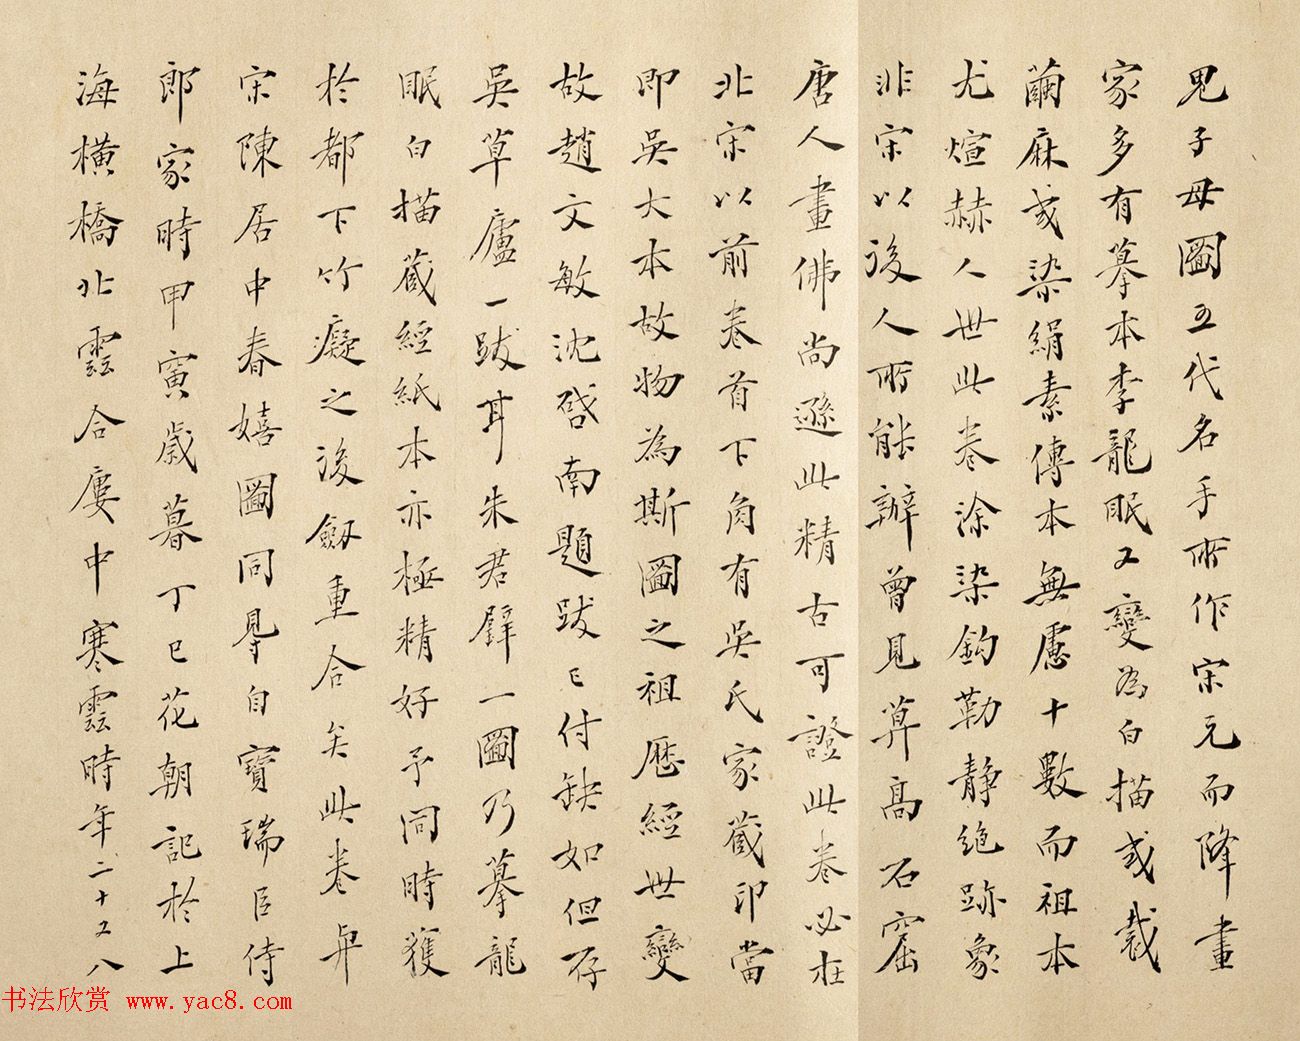 鬼子母圖五代名手所作宋元而降畫
家多有摹本李龍眠又變為白描或裁
繭麻或染絹素傳本無慮十數而祖本
尤煊赫人世此卷涂染鈎勒静絶跡象
非宋以後人所能辦曾見莽高石窟
唐人畫佛尚遜此精古可證此卷必在
北宋以前卷首下角有吳氏家藏印當
即吳大本故物為斯圖之祖歷經世變
故趙文敏沈啓南題跋已付缺如但存
吳草廬一跋耳朱君擘一圖乃摹龍
眠白描藏經紙本亦極精好予同時獲
於都下竹癡之後劔重合矣此卷與
宋陳居中春嬉圖同㝵自寶瑞臣侍
郎家時甲寅歲暮丁巳花朝記於上
海橫橋北雲合廔中寒雲時年二十又八
书法欣赏 www.yac8.com